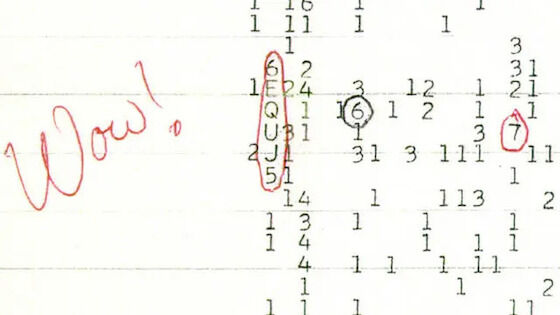 1 16 1 1
1 11 1 1
1 3
6 2 31
1 E24 3 12 1 21
Q 1 16 1 2 1 1
U31 1 3 7
2 J1 31 3 111 11
51 1
14 1 113 2
1 3 1 1 1
1 4 1 1 1
4 1 1 1 11
1 1 2
1 1 1 11
Wow!